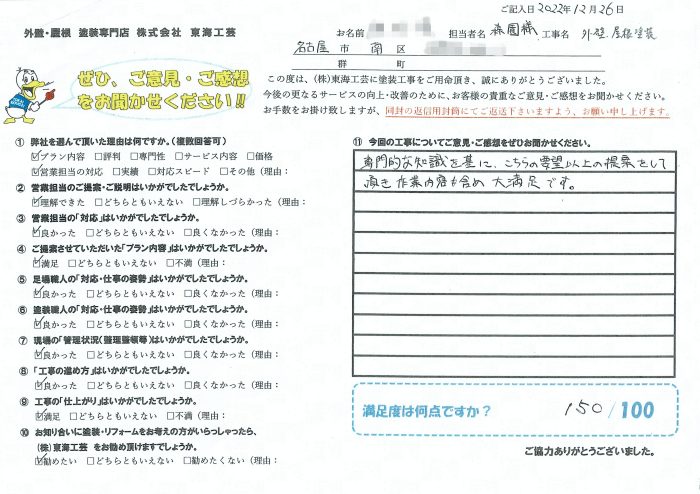 ご記入日2022年12月26日
外壁・屋根 塗装専門店 株式会社 東海工芸
お名前 担当者名 森園様 工事名 外壁、屋根塗装
名古屋 市 南 区
郡 町
ぜひ、ご意見・ご感想
をお聞かせください!!
この度は、(株)東海工芸に塗装工事をご用命頂き、誠にありがとうございました。
今後の更なるサービスの向上・改善のために、お客様の貴重なご意見・ご感想をお聞かせください。
お手数をお掛け致しますが、同封の返信用封筒にてご返送下さいますよう、お願い申し上げます。
① 弊社を選んで頂いた理由は何ですか。(複数回答可)
☑プラン内容 □評判 □専門性 □サービス内容 □価格
☑営業担当の対応 □実績 □対応スピード □その他(理由:
② 営業担当のご提案・ご説明はいかがでしたでしょうか。
☑理解できた □どちらともいえない □理解しづらかった(理由:
③ 営業担当の「対応」はいかがでしたでしょうか。
☑良かった □どちらともいえない □良くなかった(理由:
④ ご提案させていただいた「プラン内容」はいかがでしたでしょうか。
☑満足 □どちらともいえない □不満(理由:
⑤ 足場職人の「対応・仕事の姿勢」はいかがでしたでしょうか。
☑良かった □どちらともいえない □良くなかった(理由:
⑥ 塗装職人の「対応・仕事の姿勢」はいかがでしたでしょうか。
☑良かった □どちらともいえない □良くなかった(理由:
⑦ 現場の「管理状況(整理整頓等)はいかがでしたでしょうか。
☑良かった □どちらともいえない □良くなかった(理由:
⑧ 「工事の進め方」はいかがでしたでしょうか。
☑良かった □どちらともいえない □良くなかった(理由:
⑨ 工事の「仕上がり」はいかがでしたでしょうか。
☑満足 □どちらともいえない □不満(理由:
⑩ お知り合いに塗装・リフォームをお考えの方がいらっしゃったら、
(株)東海工芸 をお勧め頂けますでしょうか。
☑勧めたい □どちらともいえない □勧めたくない(理由:
⑪ 今回の工事についてご意見・ご感想をぜひお聞かせください。
専門的な知識を基に、こちらの要望以上の提案をして
頂き作業内容も含め大満足です。
満足度は何点ですか? 150/100
ご協力ありがとうございました。